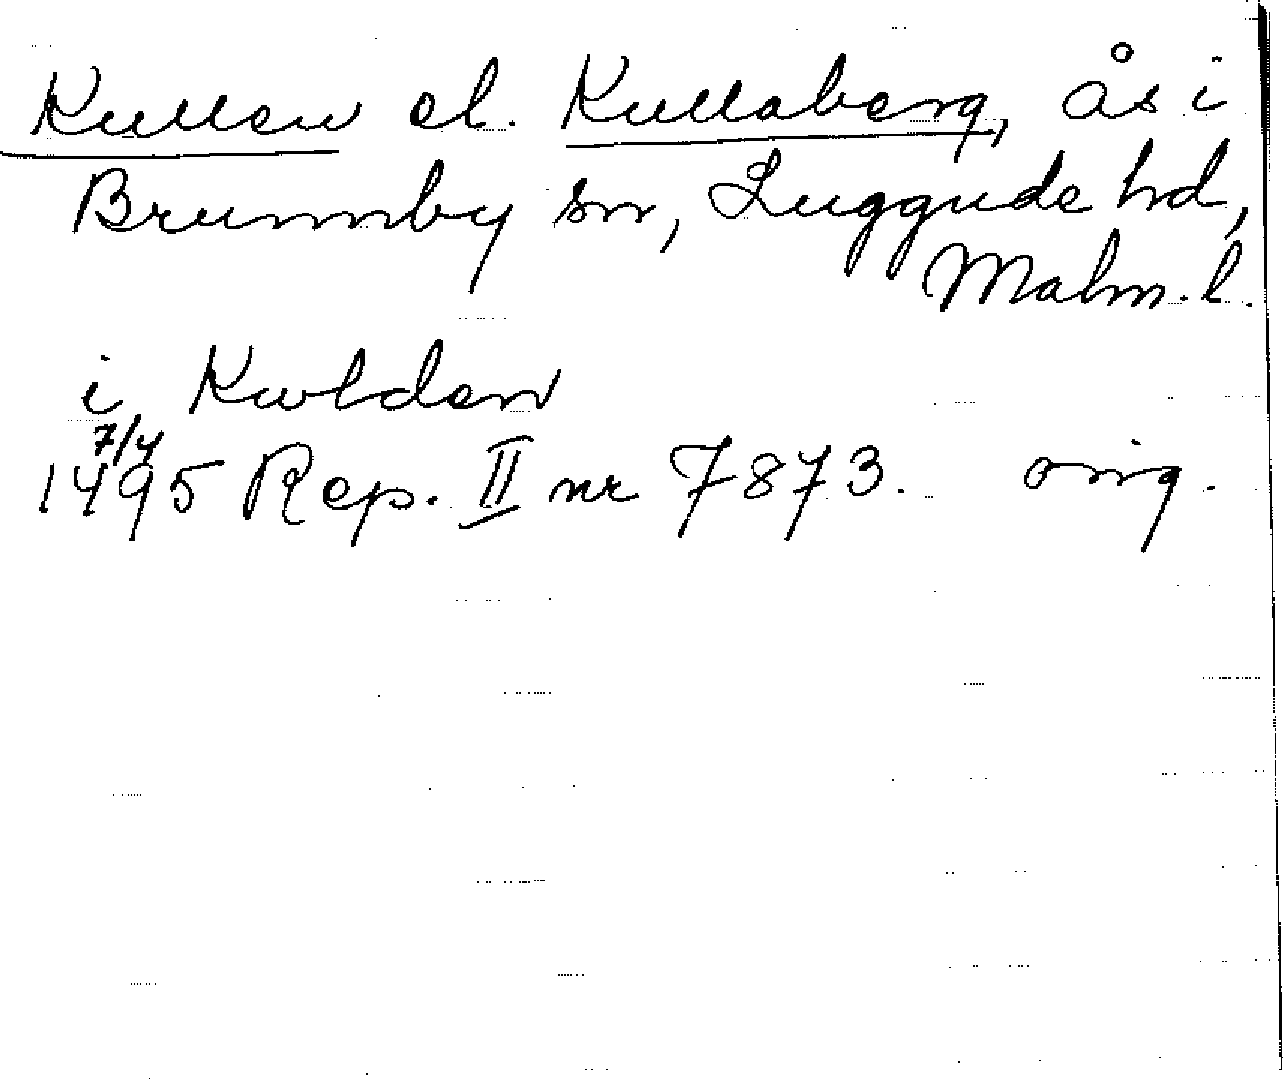 Kullen el. Kullaberg, ås i
Brunnby sn, Luggude hd,
Malm. l.
i Kwlden
7/4
1495 Rep. II nr 7873. orig.